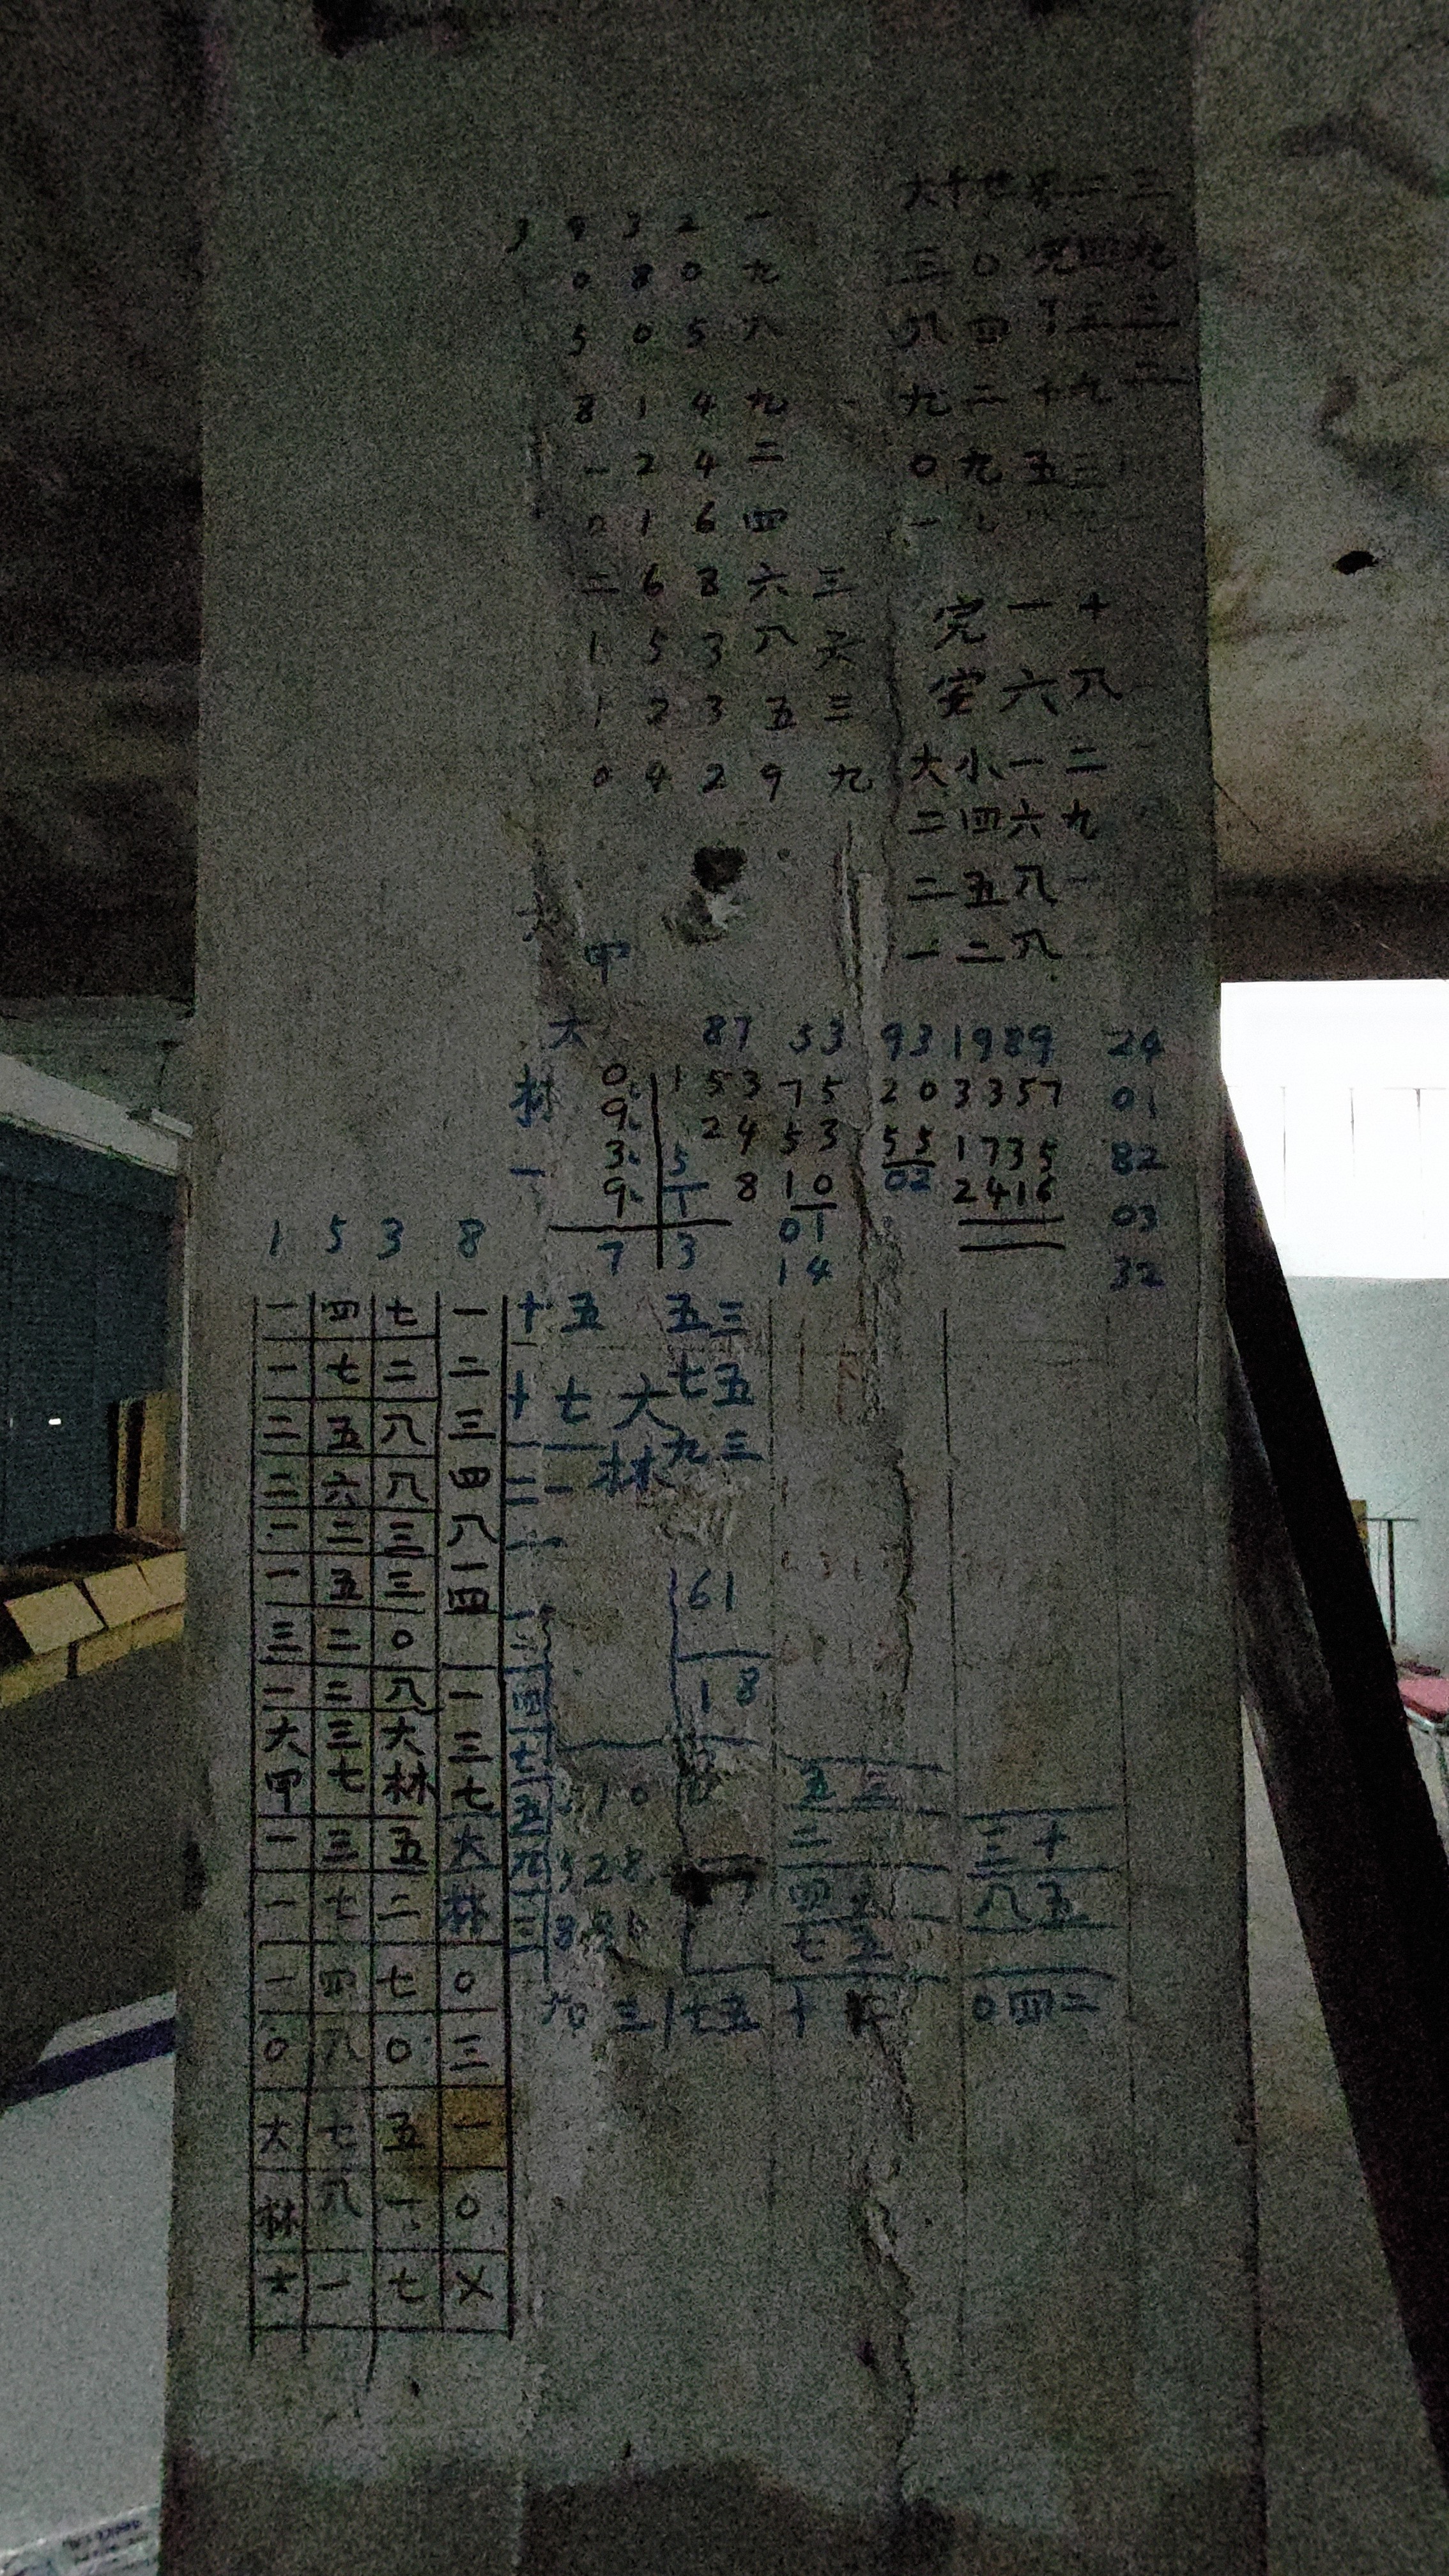 大千世界二三
3 9 3 2 一
0 8 0 九
三 0 完四九
5 0 5 八
八 四 了二三
8 1 4 九
九 二 十九二
一 2 4 二
0 九 五三
0 1 6 四
二 6 8 六 三
完 一 十
1 5 3 八 天
完 六 八
1 2 3 五 三
0 4 2 9 九
大小一二
二四六九
二五八一
一二八
甲
大 87 53 93 1989 24
林 0 1 53 75 20 3357 01
9 24 53 55 1735 82
一 3 5
9 1 8 10 02 2416 03
7 3 01
14 32
1 5 3 8
一 四 七 一
一 七 二 二
二 五 八 三
二 六 八 四
一 二 三 八
一 五 三 一四
三 二 0
一 二 八 一
大 三 大 三
甲 七 林 七
一 三 五 大
一 七 二 林
一 四 七 0
0 八 0 三
大 七 五 一
林 八 一 0
大 一 七 X
十 五 五三
十 七 大 七五
二一 林 九三
61
18
三
四
七
五
九
三
10
五 三
二
三十
328
四
八五
七五
九 三 七五 十
0四二